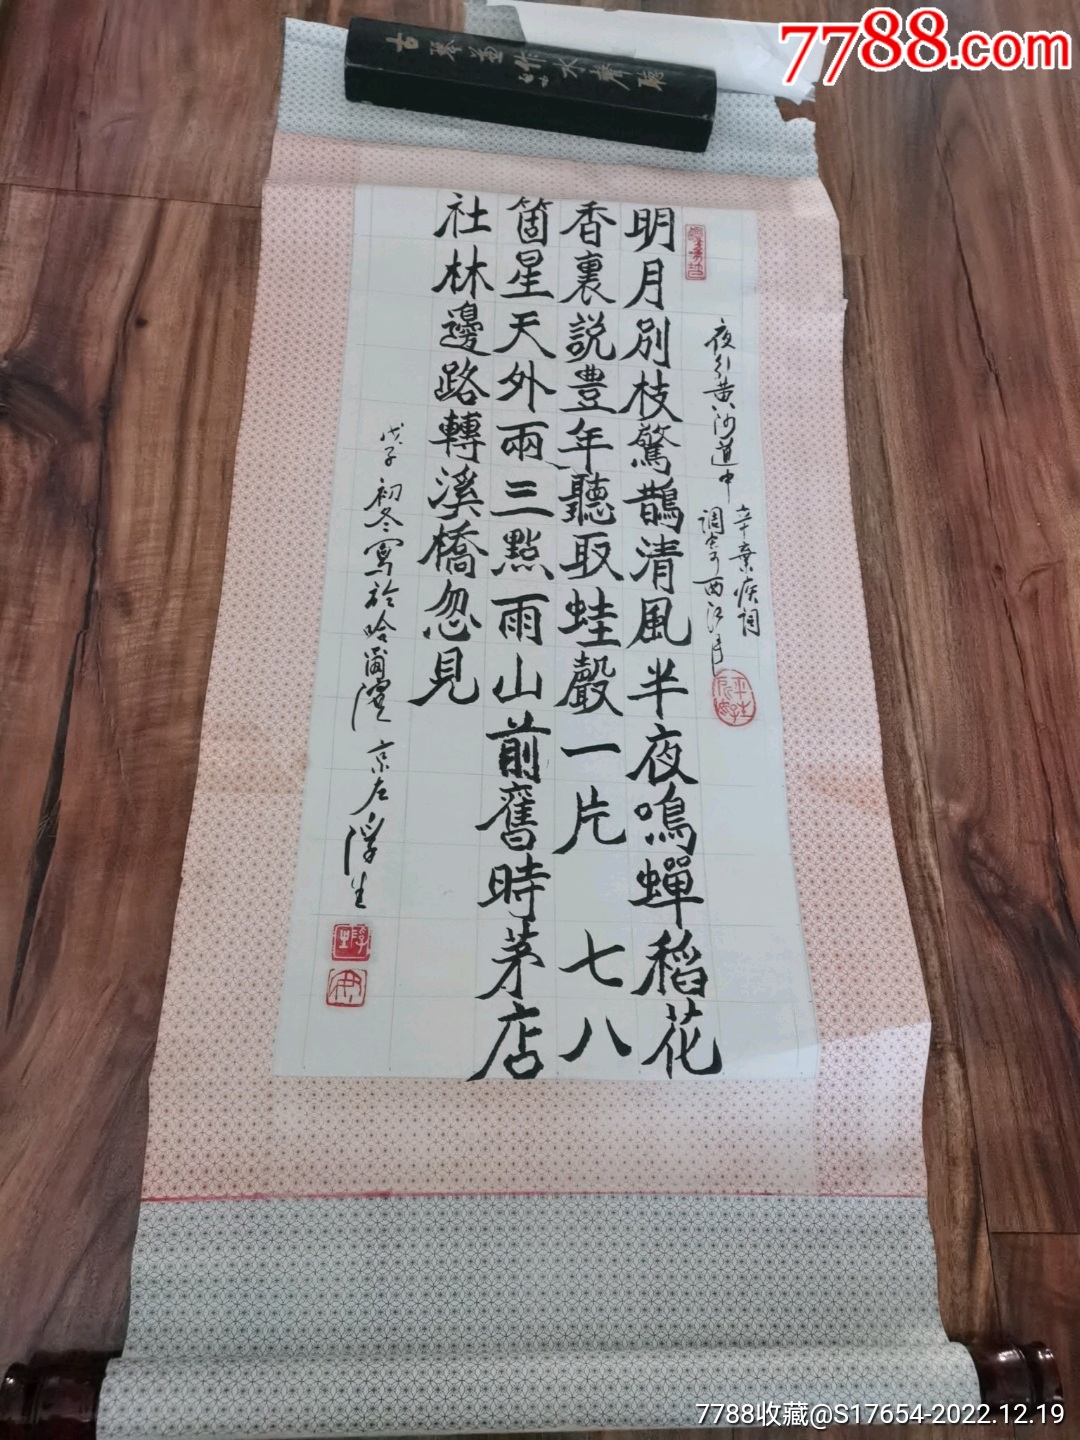 7788.com
古琴並作水聲聽
夜行黄沙道中
辛棄疾詞
調寄西江月
明月别枝驚鵲清風半夜鳴蟬稻花
香裏説豊年聽取蛙聲一片七八
箇星天外兩三點雨山前舊時茅店
社林邊路轉溪橋忽見
戊子初冬寫於哈爾濱 京左浮生
7788收藏@S17654-2022.12.19